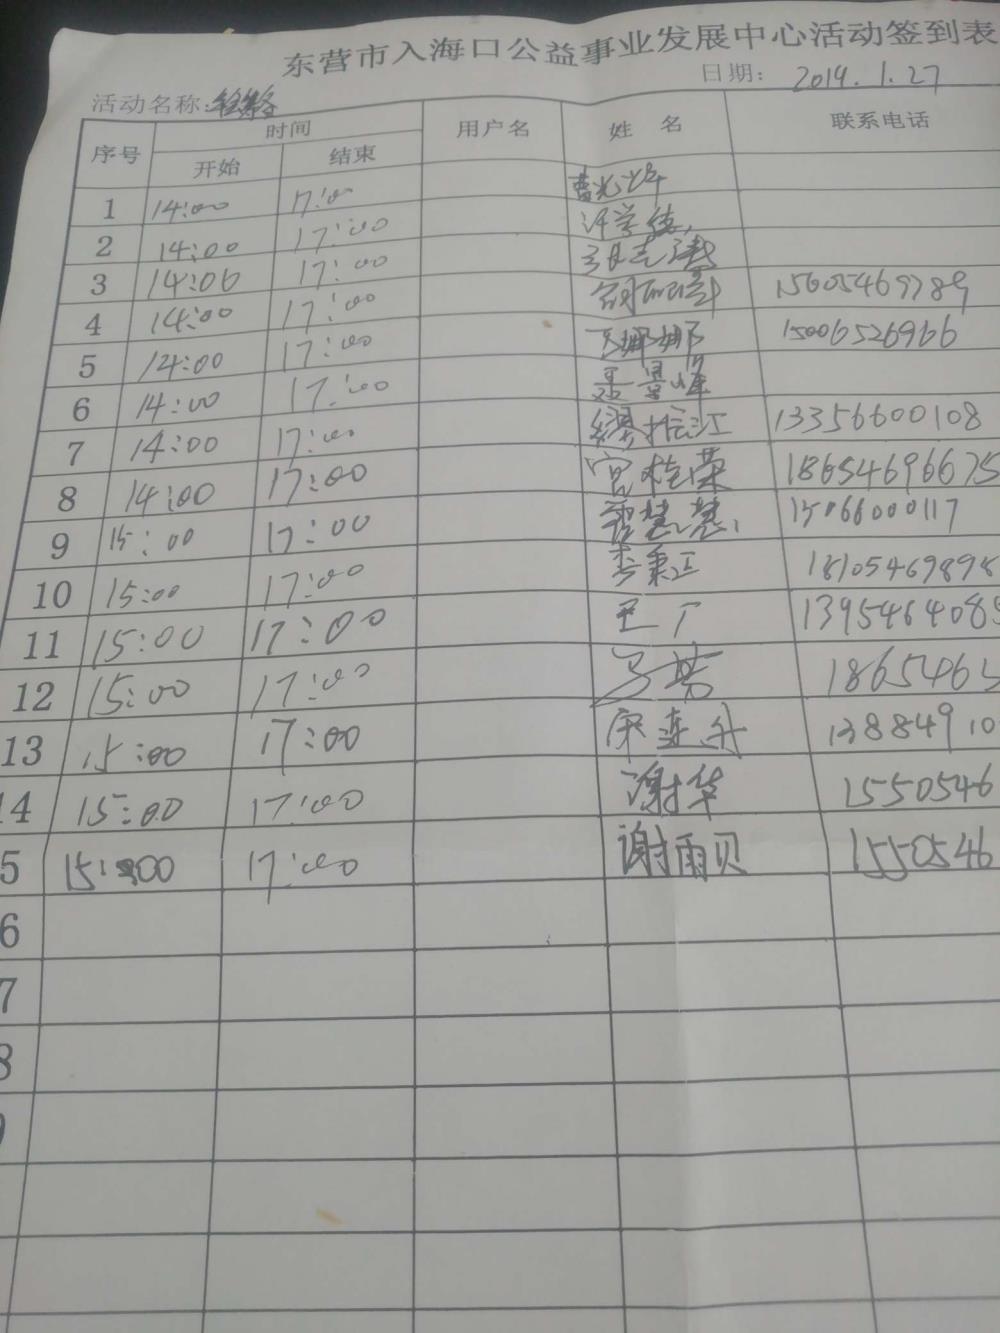 东营市入海口公益事业发展中心活动签到表
日期： 2019.1.27
活动名称：
序号 时间 用户名 姓 名 联系电话
开始 结束
1 14:00 17:00
2 14:00 17:00 许学德
3 14:00 17:00
4 14:00 17:00 15605469789
5 14:00 17:00 王娜娜 15006526966
6 14:00 17:00
7 14:00 17:00 13356600108
8 14:00 17:00 宫桂荣 18654696675
9 15:00 17:00 15066000117
10 15:00 17:00 李秉正 18105469898
11 15:00 17:00 王广 1395464085
12 15:00 17:00 1865465
13 15:00 17:00 宋连升 13884910
14 15:00 17:00 谢华 1550546
5 15:00 17:00 谢雨贝 1550546
6
7
8
9